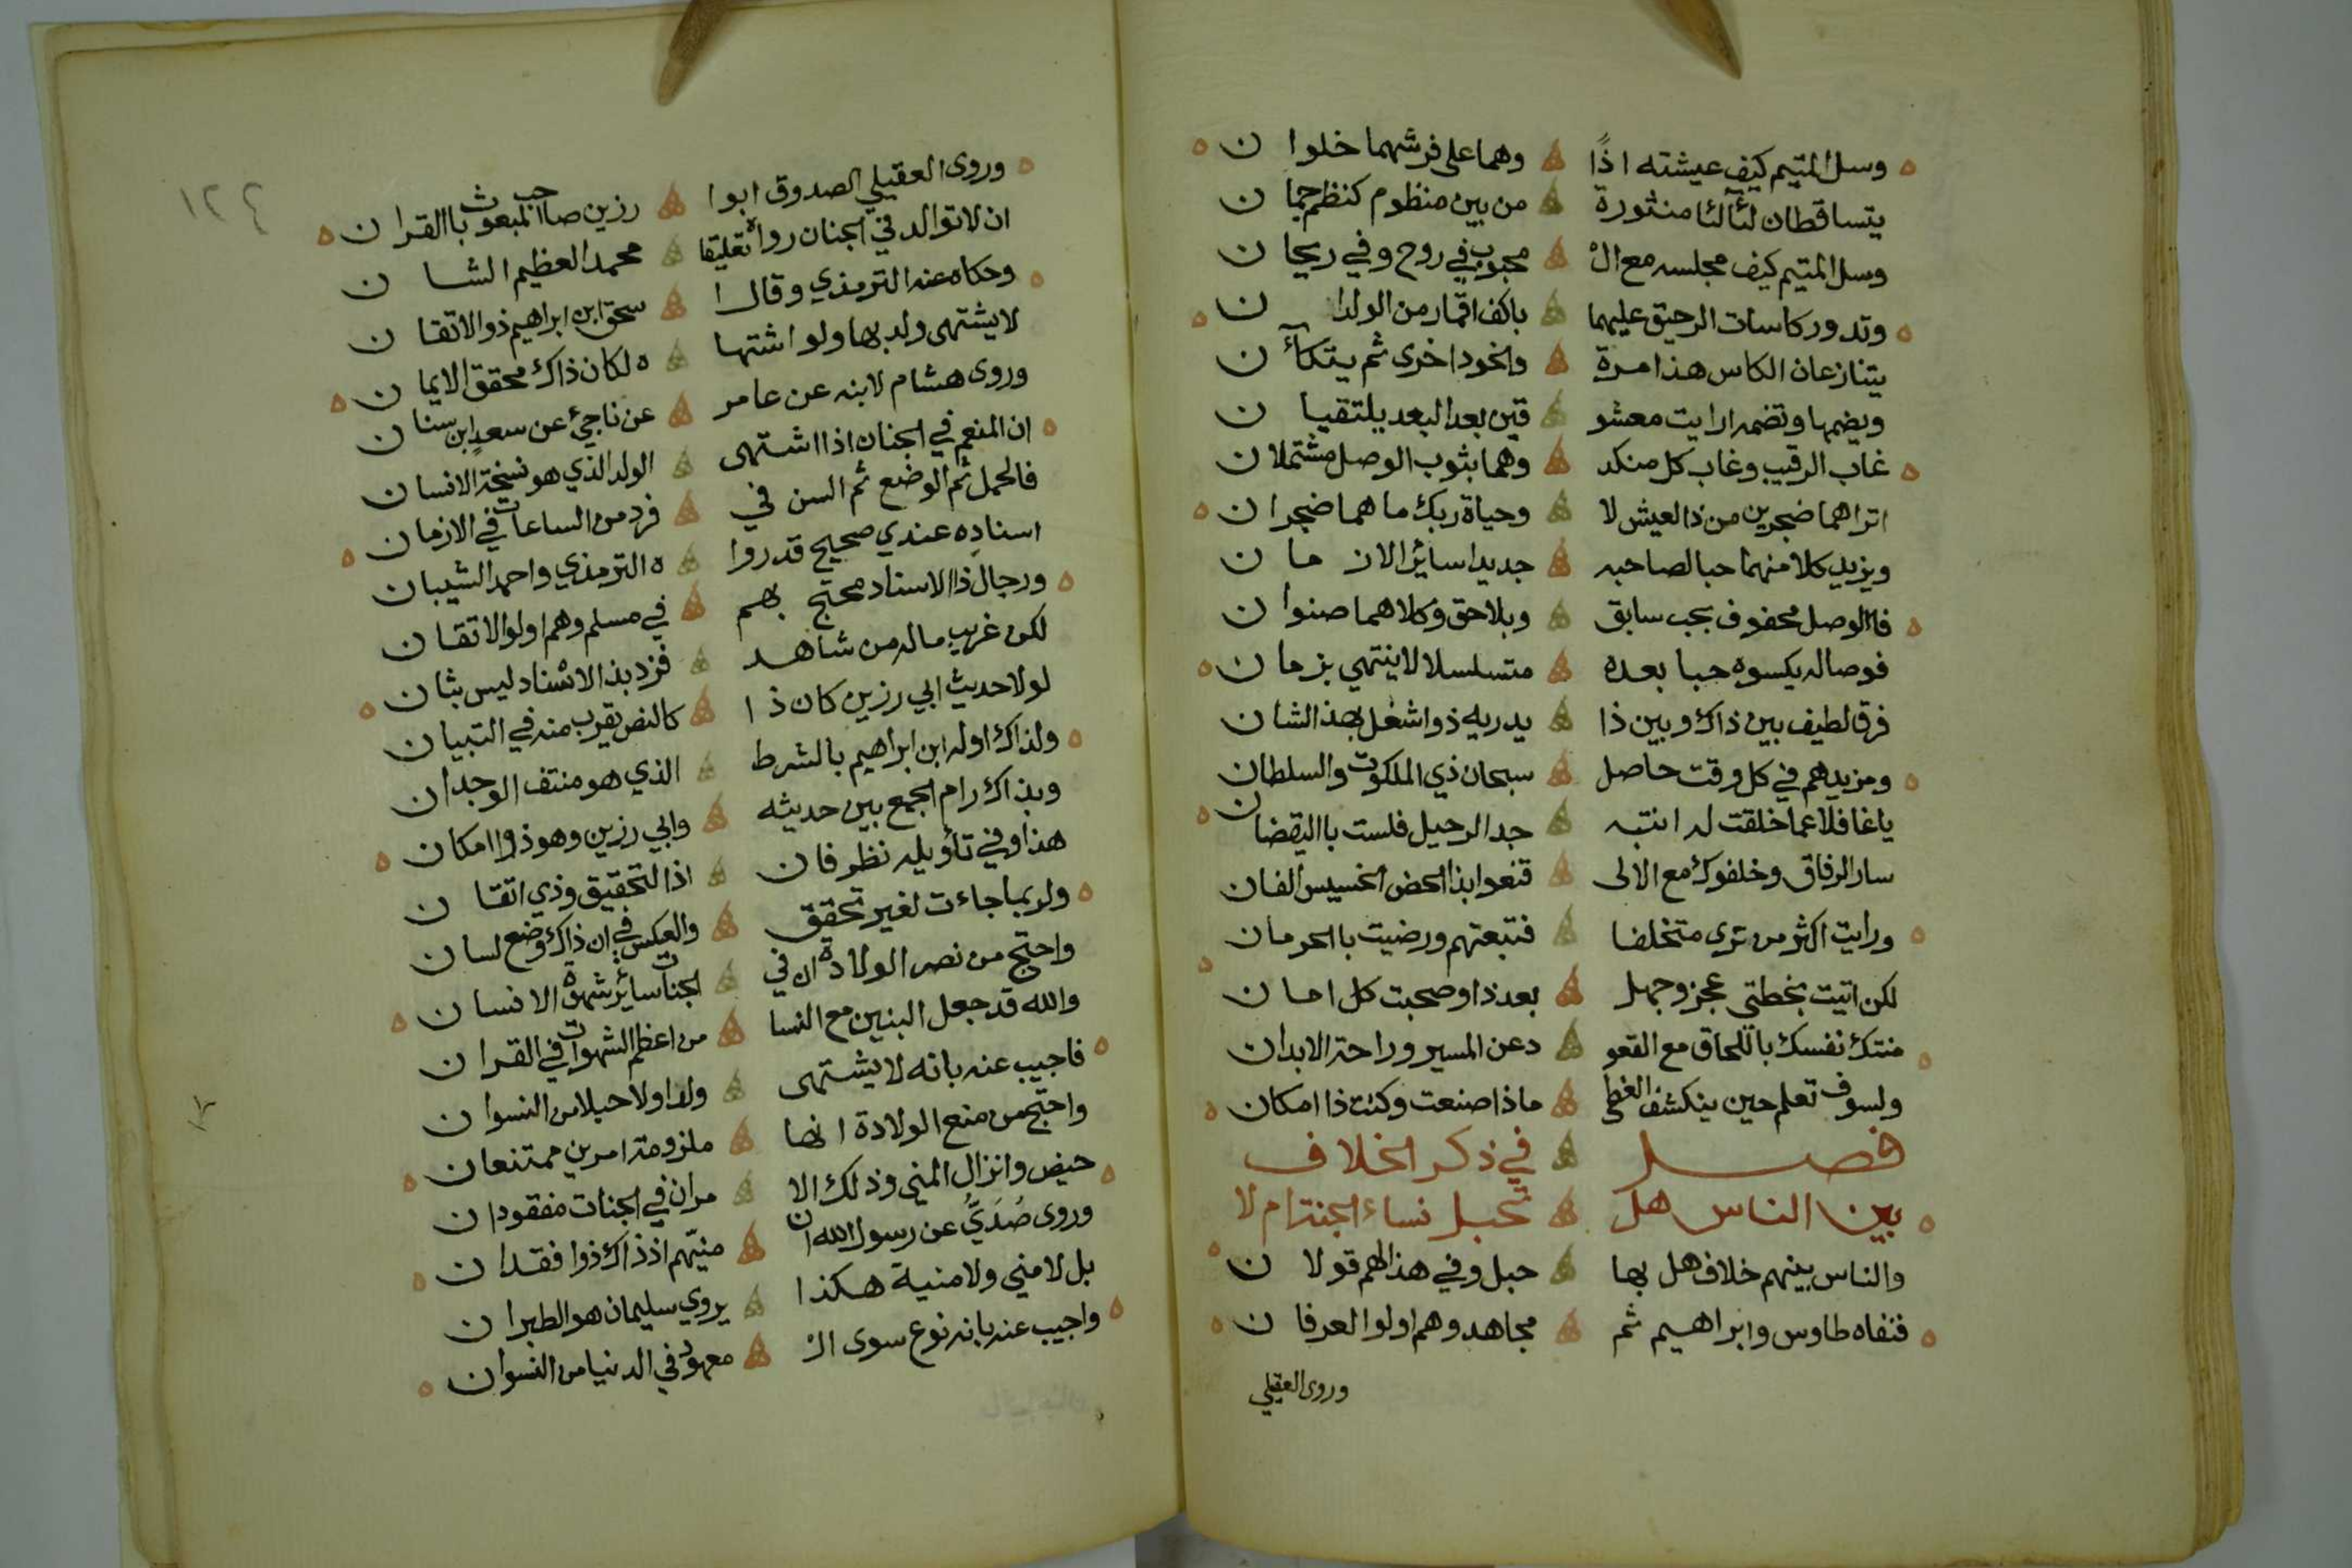 وسل المتيم كيف عيشته اذًا وهما على فرشهما خلوان
يتساقطان لئآلئا منثورة من بين منظوم كنظم جمان
وسل المتيم كيف مجلسه مع الْ محبوب في روح وفي ريحان
وتدور كاسات الرحيق عليهما باكف اقمار من الولدان
يتنازعان الكاس هذا مرة والخود اخرى ثم يتكآن
ويضمها وتضمه ارايت معشو قين بعد البعد يلتقيان
غاب الرقيب وغاب كل منكد وهما بثوب الوصل مشتملان
اتراهما ضجرين من ذا العيش لا وحياة ربك ما هما ضجران
ويزيد كلا منهما حبا لصاحبه جديدا سائر الازمان
فاالوصل محفوف بحب سابق وبلاحق وكلاهما صنوان
فوصاله يكسوه حبا بعده متسلسلا لا ينتهي بزمان
فرق لطيف بين ذاك وبين ذا يدريه ذوا شغل بهذ الشان
ومزيدهم في كل وقت حاصل سبحان ذي الملكوت والسلطان
ياغافلا عما خلقت له انتبه جد الرحيل فلست باليقضان
سار الرفاق وخلفوك مع الالى قنعوا بذا الحض الخسيس الفان
ورايت اكثر من ترى متخلفا فتبعتهم ورضيت باالحرمان
لكن اتيت بخطتى عجز وجهل بعد ذا وصحبت كل امان
منتك نفسك باللحاق مع القعو دعن المسير وراحة الابدان
ولسوف تعلم حين ينكشف الغطى ماذا صنعت وكنت ذا امكان
فصل في ذكر الخلاف
بين الناس هل تحبل نساء الجنة ام لا
والناس بينهم خلاف هل بها حبل وفي هذا لهم قولان
فنفاه طاوس وابراهيم ثم مجاهد وهم اولوا العرفان
وروى العقيلي
١٢٤
وروى العقيلي الصدوق ابوا رزين صاحب المبعوث باالقران
ان لا توالد في الجنان رواه تعليقا محمد العظيم الشان
وحكاه عنه الترمذي وقال ا سحق ابن ابراهيم ذوا لاتقان
لا يشتهى ولد بها ولو اشتها ه لكان ذاك محقق الايمان
وروى هشام لابنه عن عامر عن ناجيٍ عن سعدٍ ابن سنان
ان المنعم في الجنان اذا اشتهى الولد الذي هو نسخة الانسان
فالحمل ثم الوضع ثم السن في فرد من الساعات في الازمان
اسناده عندي صحيح قد روا ه الترمذي واحمد الشيبان
ورجال ذا الاسناد محتج بهم في مسلم وهم اولوا لاتقان
لكن غريب ماله من شاهد فرد بذ الاسناد ليس بثان
لولا حديث ابي رزين كان ذا كالنص يقرب منه في التبيان
ولذاك اوله ابن ابراهيم بالشرط الذي هو منتف الوجدان
وبذاك رام الجمع بين حديثه وابي رزين وهو ذوا امكان
هذا وفي تأويله نظر فان اذا لتحقيق وذي اتقان
ولربما جاءت لغير تحقق والعكس في ان ذاك وضع لسان
واحتج من نصر الولادة ان في الجنات سائر شهوة الانسان
والله قد جعل البنين مع النسا من اعظم الشهوات في القران
فاجيب عنه بانه لا يشتهى ولدا ولا حبلا من النسوان
واحتج من منع الولادة انها ملزومة امرين ممتنعان
حيض وانزال المني وذلك الا مران في الجنات مفقودان
وروى صُدَيٌّ عن رسول الله ان منيّهم اذ ذاك ذوا فقدان
بل لا مني ولا منية هكذا يروي سليمان هو الطبران
واجيب عنه بانه نوع سوى الْ معهود في الدنيا من النسوان